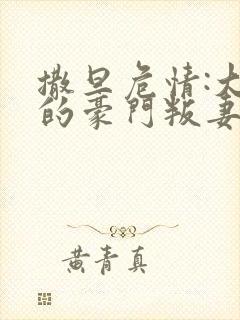 撒旦危情:大
的豪門叛妻
黄青真